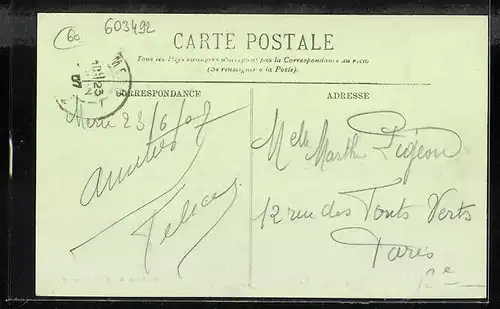 60
603492
CARTE POSTALE
Tous les Pays étrangers n'acceptent pas la Correspondance au recto
(Se renseigner à la Poste).
CORRESPONDANCE
ADRESSE
Meru 23/6/07
Melle Marthe Pigeon
amitiés
12 rue des Ponts Verts
Paris